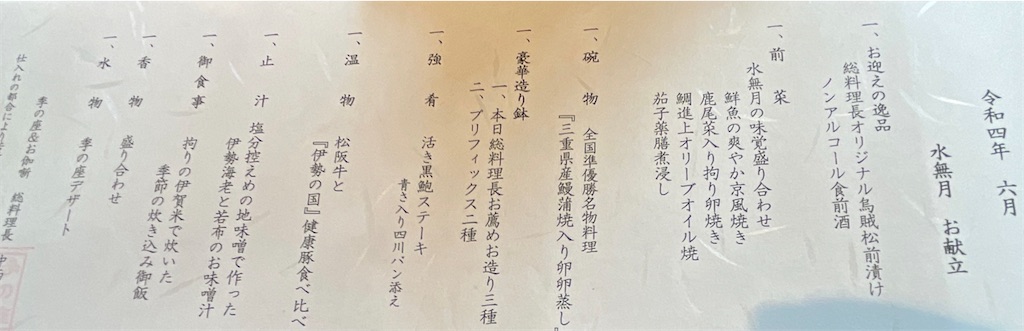 令和四年 六月
水無月 お献立
一、お迎えの逸品
総料理長オリジナル烏賊松前漬け
ノンアルコール食前酒
一、前菜
水無月の味覚盛り合わせ
鮮魚の爽やか京風焼き
鹿尾菜入り拘り卵焼き
鯛進上オリーブオイル焼
茄子薬膳煮浸し
一、碗物 全国準優勝名物料理
『三重県産鰻蒲焼入り卵卵蒸し』
一、豪華造り鉢
一、本日総料理長お薦めお造り三種
二、プリフィックス二種
一、強肴 活き黒鮑ステーキ
青さ入り四川パン添え
一、温物 松阪牛と
『伊勢の国』健康豚食べ比べ
一、止汁 塩分控えめの地味噌で作った
伊勢海老と若布のお味噌汁
一、御食事 拘りの伊賀米で炊いた
季節の炊き込み御飯
一、香物 盛り合わせ
一、水物 季の座デザート
季の座&お伽噺 総料理長
仕入れの都合により